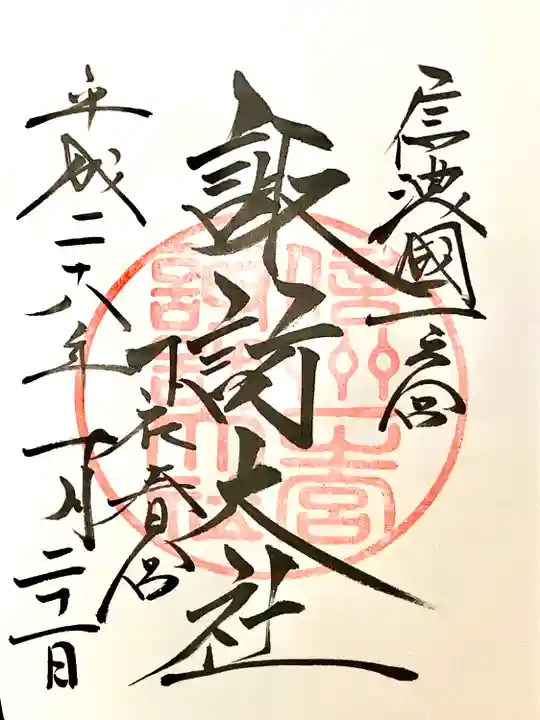 信濃國一之宮
諏訪大社
下社春宮
平成二十八年十一月二十一日
信州一宮
諏訪大社